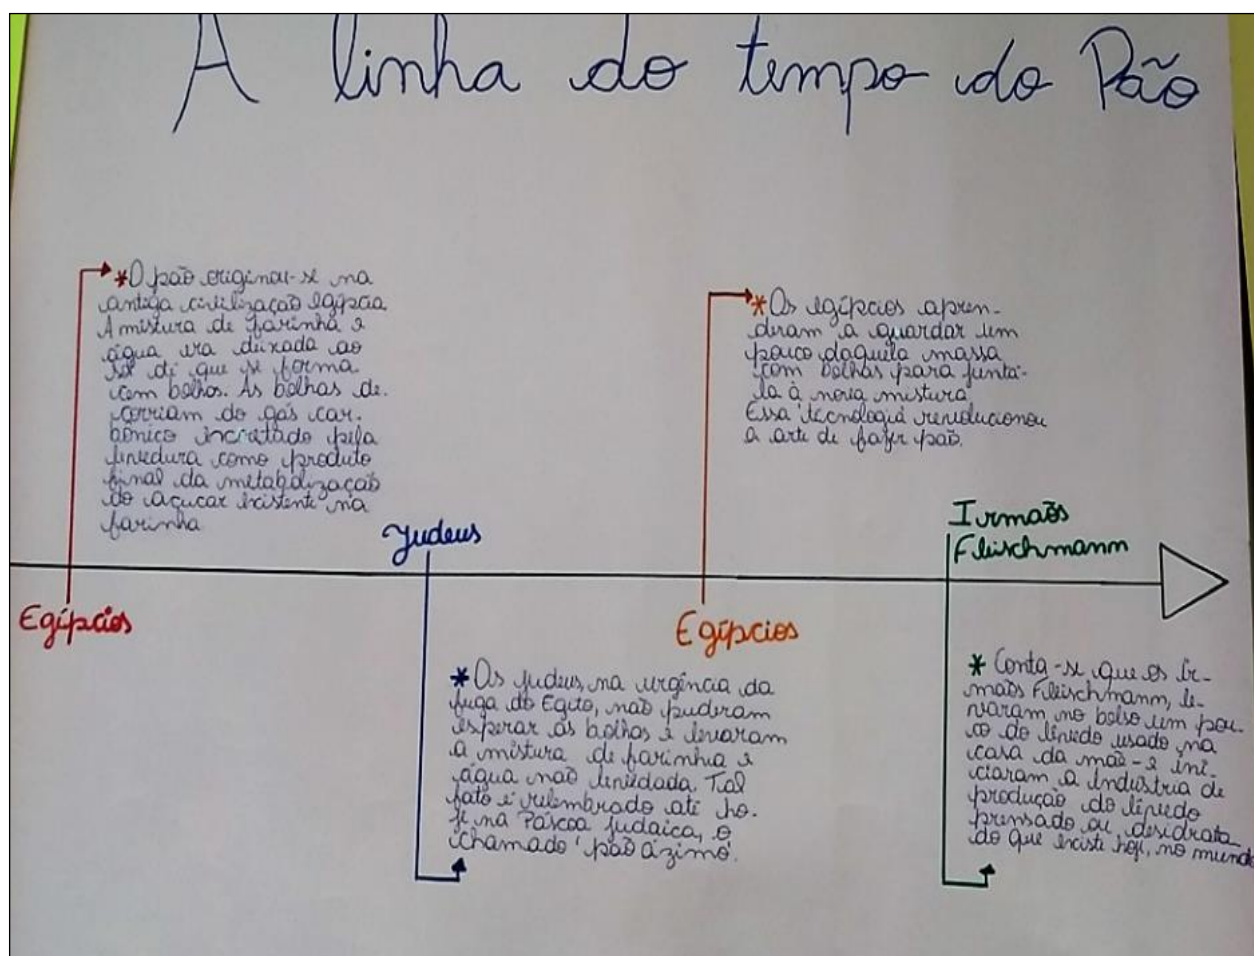 A linha do tempo do Pão
*O pão originou-se na
antiga civilização egípcia
A mistura de farinha e
água era deixada ao
sol de que se forma
com bolhos. As bolhas de-
corriam do gás car-
bônico incretado pela
levedura como produto
final da metabolização
do açucar existente na
farinha
Egípcios
Judeus
*Os judeus, na urgência da
fuga do Egito, não puderam
esperar as bolhas e levaram
a mistura de farinha e
água não levedada. Tal
fato é relembrado até ho-
je na Páscoa judaica, o
chamado 'pão ázimo'.
*Os egípcios apren-
deram a guardar um
pouco daquela massa
com bolhas para juntá-
la à nova mistura
Essa tecnologia revolucionou
a arte de fazer pão.
Egípcios
Irmãos
Fleischmann
*Conta-se que os ir-
mãos Fleischmann, le-
varam no bolso um pou-
co do lêvedo usado na
casa da mãe - e ini-
ciaram a indústria de
produção do lêvedo
prensado ou desidrata-
do que existe hoje, no mundo